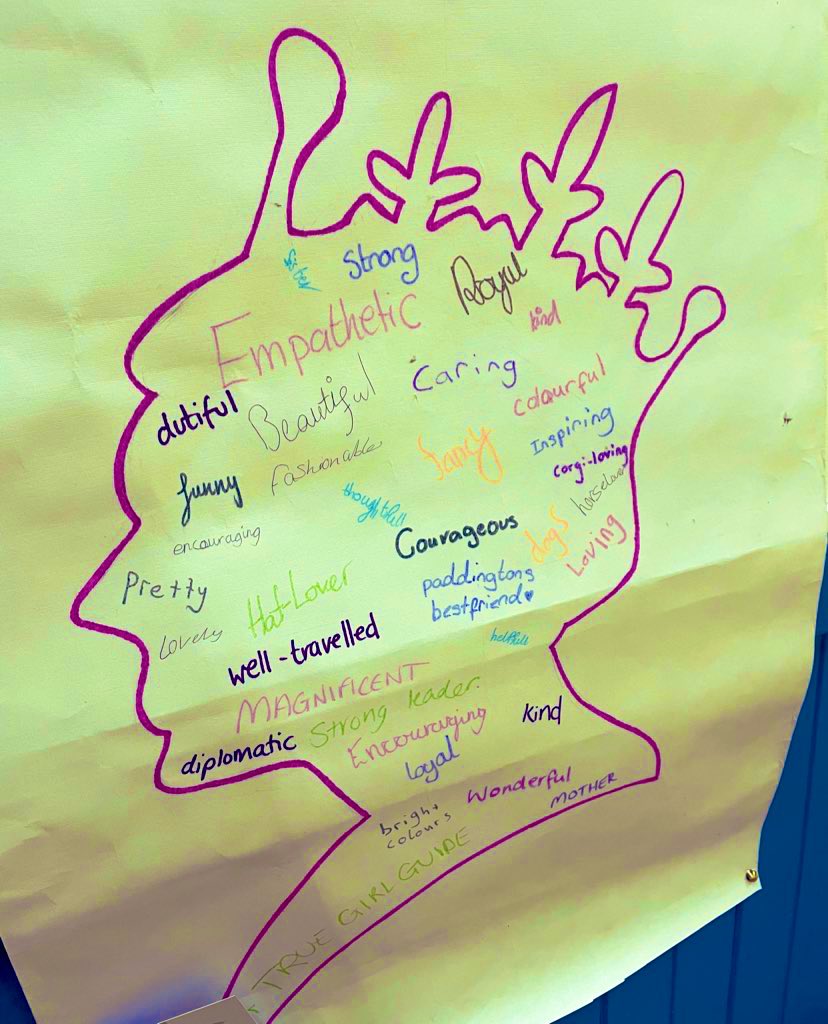 Sister
Strong
Royal
Empathetic
kind
Caring
colourful
dutiful
Beautiful
fancy
Inspiring
funny
fashionable
corgi-loving
horselover
thoughtfull
encouraging
Courageous
dogs
Loving
Pretty
Hat-Lover
paddingtons
bestfriend♥
Lovely
well-travelled
helpfull
MAGNIFICENT
Strong leader.
diplomatic
Encouraging
kind
loyal
bright
colours
Wonderful
MOTHER
TRUE GIRL GUIDE